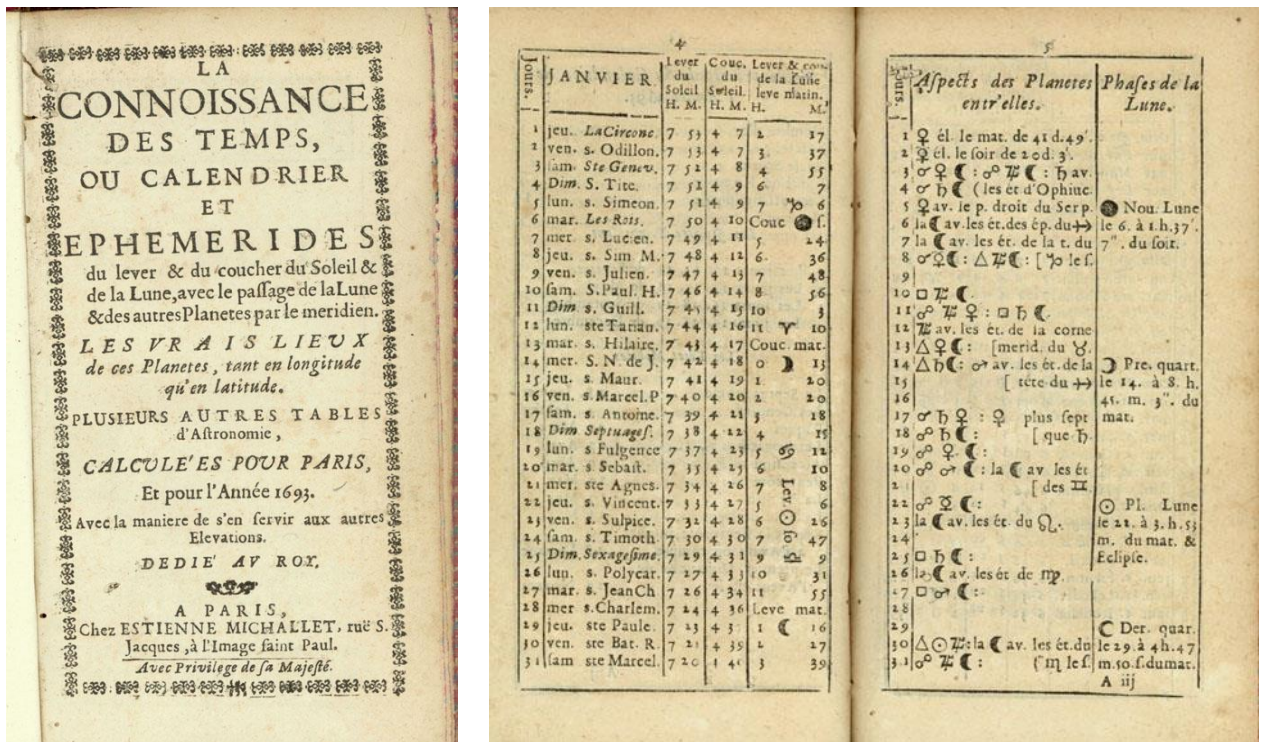 LA
CONNOISSANCE
DES TEMPS,
OU CALENDRIER
ET
EPHEMERIDES
du lever & du coucher du Soleil &
de la Lune, avec le passage de la Lune
& des autres Planetes par le meridien.
LES VRAIS LIEUX
de ces Planetes, tant en longitude
qu'en latitude.
PLUSIEURS AUTRES TABLES
d'Astronomie,
CALCULE'ES POUR PARIS,
Et pour l'Année 1693.
Avec la maniere de s'en servir aux autres
Elevations.
DEDIE' AV ROY,
A PARIS,
Chez ESTIENNE MICHALLET, ruë S.
Jacques, à l'Image saint Paul.
Avec Privilege de sa Majesté.
4
Jours. JANVIER Lever du Soleil H. M. Couc. du Soleil. H. M. Lever & de la Lune leve matin. H. M.
1 jeu. La Circonc. 7 53 4 7 2 17
2 ven. s. Odillon. 7 53 4 7 3 37
3 sam. Ste Genev. 7 52 4 8 4 55
4 Dim. S. Tite. 7 52 4 9 6 7
5 lun. s. Simeon. 7 51 4 9 7 ♑ 6
6 mar. Les Rois. 7 50 4 10 Couc ● s.
7 mer. s. Lucien. 7 49 4 11 5 24
8 jeu. s. Sim M. 7 48 4 12 6 36
9 ven. s. Julien. 7 47 4 13 7 48
10 sam. S. Paul. H. 7 46 4 14 8 56
11 Dim s. Guill. 7 45 4 15 10 3
12 lun. ste Tatian. 7 44 4 16 11 ♈ 10
13 mar. s. Hilaire. 7 43 4 17 Couc. mat.
14 mer. S. N. de J. 7 42 4 18 0 ☽ 13
15 jeu. s. Maur. 7 41 4 19 1 20
16 ven. s. Marcel. P 7 40 4 20 2 20
17 sam. s. Antoine. 7 39 4 21 3 18
18 Dim Septuages. 7 38 4 22 4 15
19 lun. s Fulgence 7 37 4 23 5 ♋ 12
20 mar. s. Sebast. 7 35 4 25 6 10
21 mer. ste Agnes. 7 34 4 26 7 8
22 jeu. s. Vincent. 7 33 4 27 5 6
23 ven. s. Sulpice. 7 32 4 28 6 ☉ 26
24 sam. s. Timoth 7 30 4 30 7 47
25 Dim. Sexagesime. 7 29 4 31 9 9
26 lun. s. Polycar. 7 27 4 33 10 31
27 mar. s. Jean Ch 7 26 4 34 11 55
28 mer s. Charlem. 7 24 4 36 Leve mat.
29 jeu. ste Paule. 7 23 4 37 1 ☾ 16
30 ven. ste Bat. R. 7 21 4 39 2 27
31 sam ste Marcel. 7 20 4 3 39
5
Jours. Aspects des Planetes entr'elles. Phases de la Lune.
1 ♀ él. le mat. de 41 d. 49'.
2 ☿ él. le soir de 20 d. 3'.
3 ☌ ♀ ☾ : ☍ ♃ ☾ : ♄ av.
4 ☌ ♄ ☾ ( les ét d'Ophiuc.
5 ♀ av. le p. droit du Serp. ● Nou. Lune
6 la ☾ av. les ét. des ép. du ♐ le 6. à 1. h. 37'.
7 la ☾ av. les ét. de la t. du 7". du soir.
8 ☌ ☿ ☾ : △ ♃ ☾ : [ ♑ le s.
9
10 □ ♃ ☾.
11 ☍ ♃ ♀ : □ ♄ ☾.
12 ♃ av. les ét. de la corne
13 △ ♀ ☾ : [merid. du ♉.
14 △ ♄ ☾ : ♂ av. les ét. de la ☽ Pre. quart.
15 [ tête du ♐ le 14. à 8. h.
16 45. m. 3". du
17 ☌ ♄ ♀ : ♀ plus sept mat.
18 ☍ ♄ ☾ : [ que ♄.
19 ☍ ♀ ☾ :
20 ☍ ♂ ☾ : la ☾ av les ét
21 [ des ♊.
22 ☍ ☿ ☾ : ☉ Pl. Lune
23 la ☾ av. les ét. du ♌. le 22. à 3. h. 53
24 m. du mat. &
25 □ ♄ ☾ : Eclipse.
26 la ☾ av. les ét de ♍.
27 □ ♂ ☾ :
28
29 ☾ Der. quar.
30 △ ☉ ♃ : la ☾ av. les ét. du le 29. à 4h. 47
31 ☍ ♃ ☾ : (♏ le s. m. 50. s. du mat.
A iij